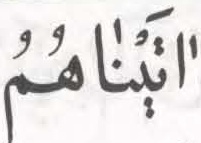 اٰتَيْنٰاهُمُ